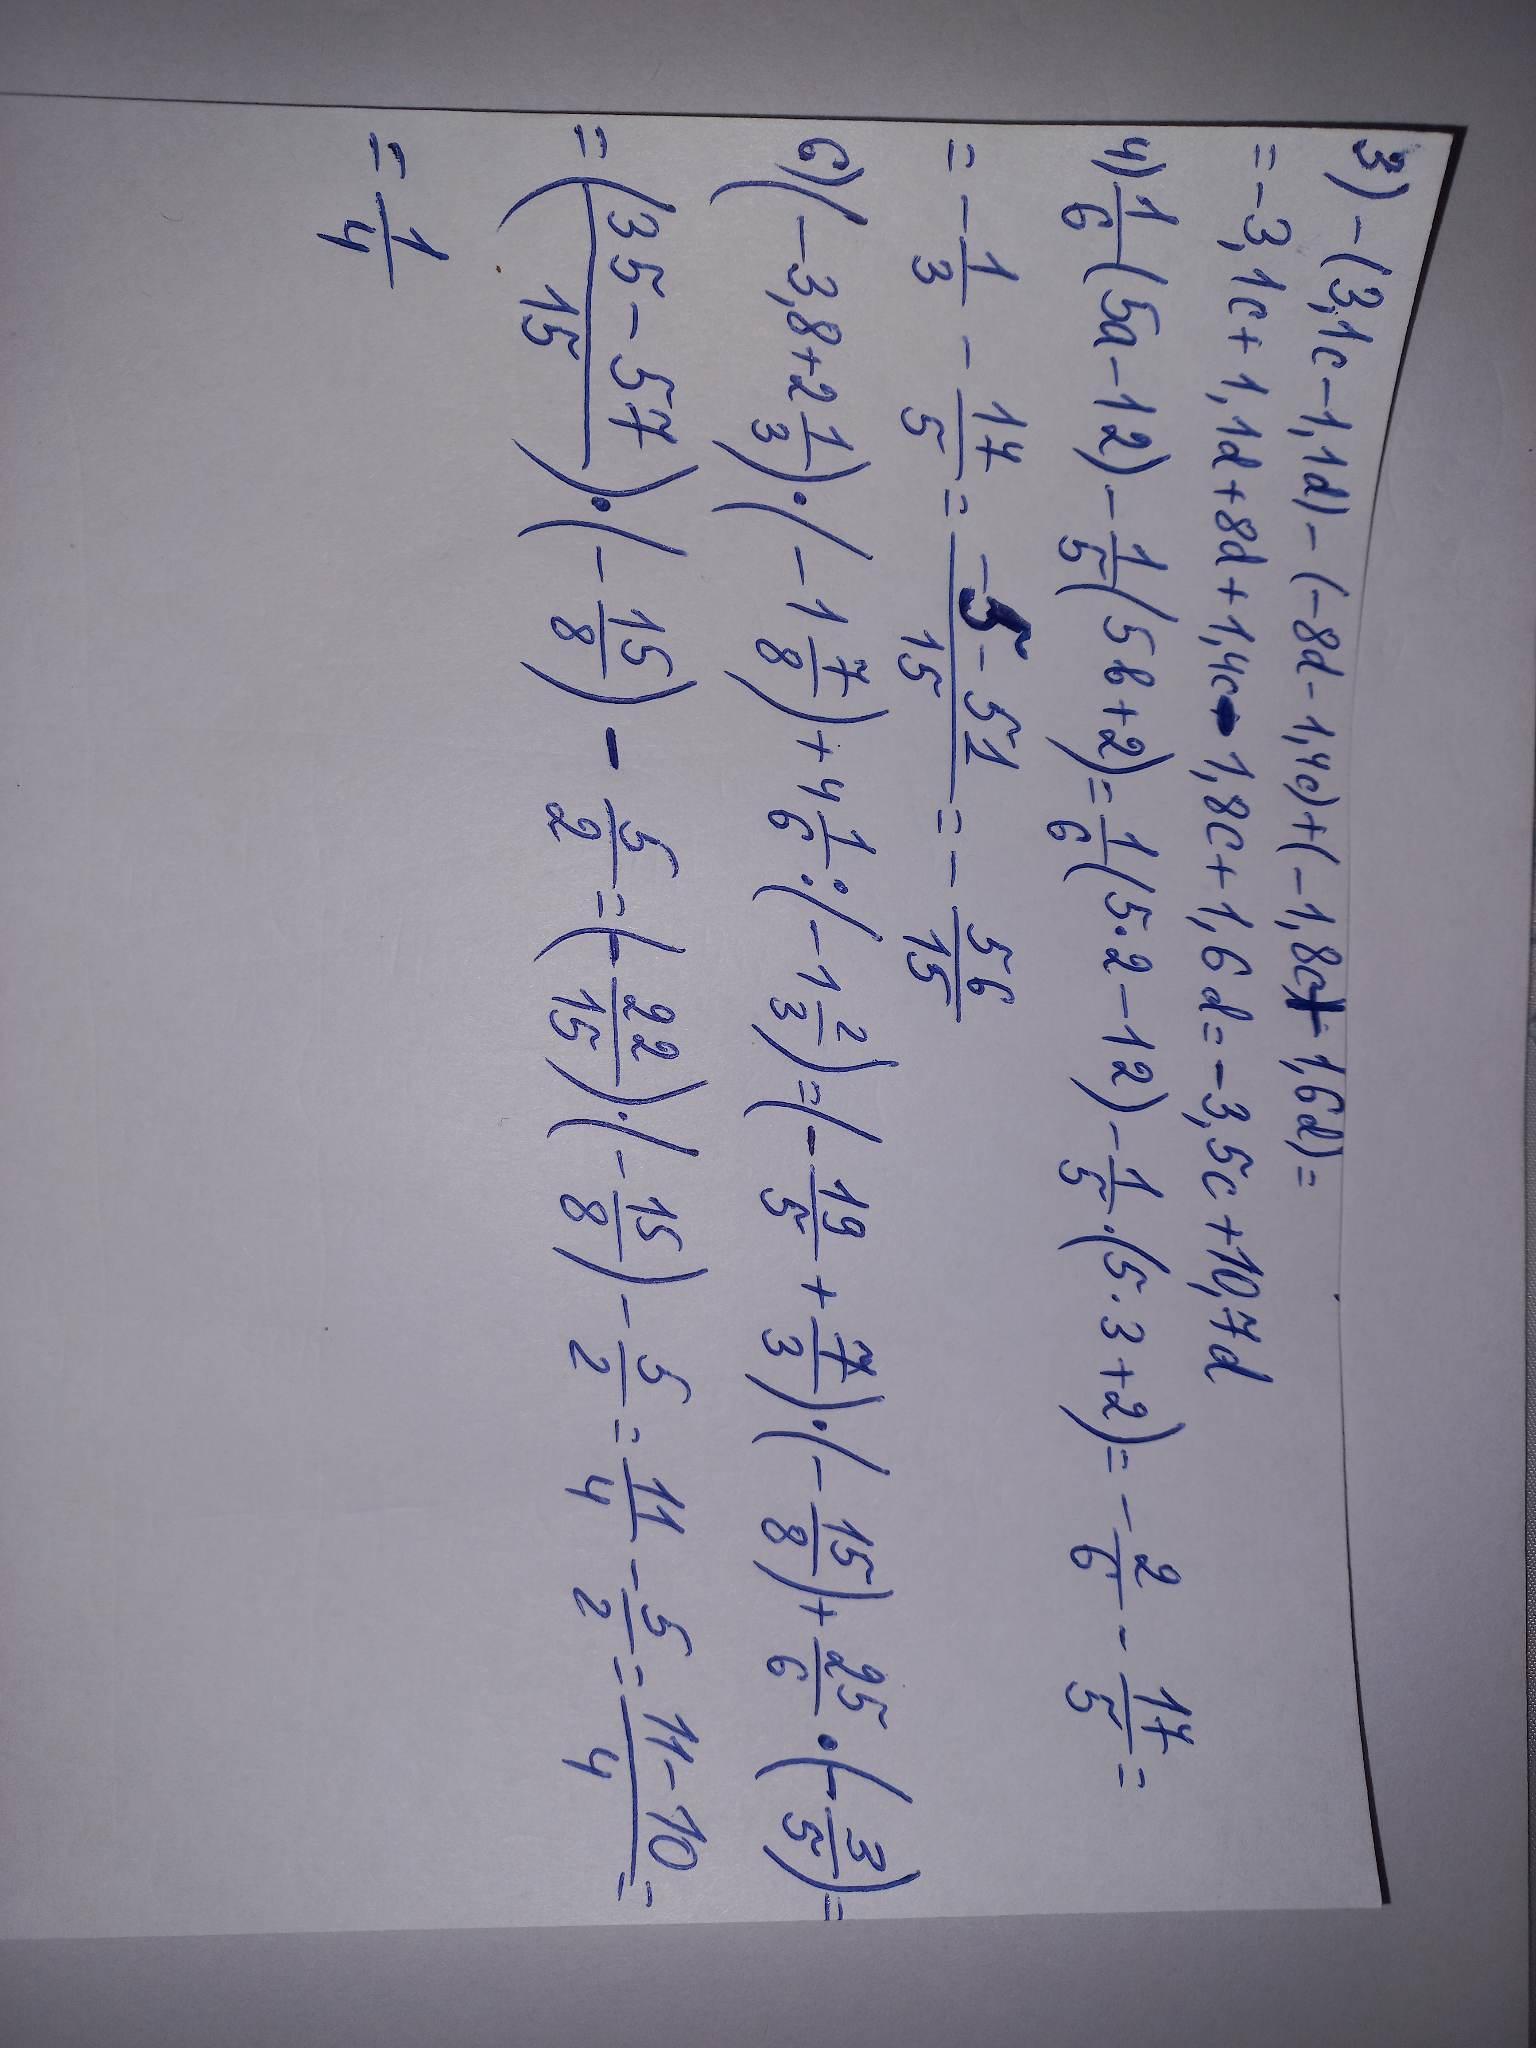 3) -(3,1c-1,1d)-(-8d-1,4c)+(-1,8c+1,6d)=
=-3,1c+1,1d+8d+1,4c-1,8c+1,6d=-3,5c+10,7d
4) 1/6(5a-12)-1/5(5b+2)=1/6(5·2-12)-1/5·(5·3+2)=-2/6-17/5=
=-1/3-17/5=(-5-51)/15=-56/15
6) (-3,8+2 1/3)·(-1 7/8)+4 1/6:(-1 2/3)=(-19/5+7/3)·(-15/8)+25/6·(-3/5)=
=((35-57)/15)·(-15/8)-5/2=(-22/15)·(-15/8)-5/2=11/4-5/2=(11-10)/4=
=1/4